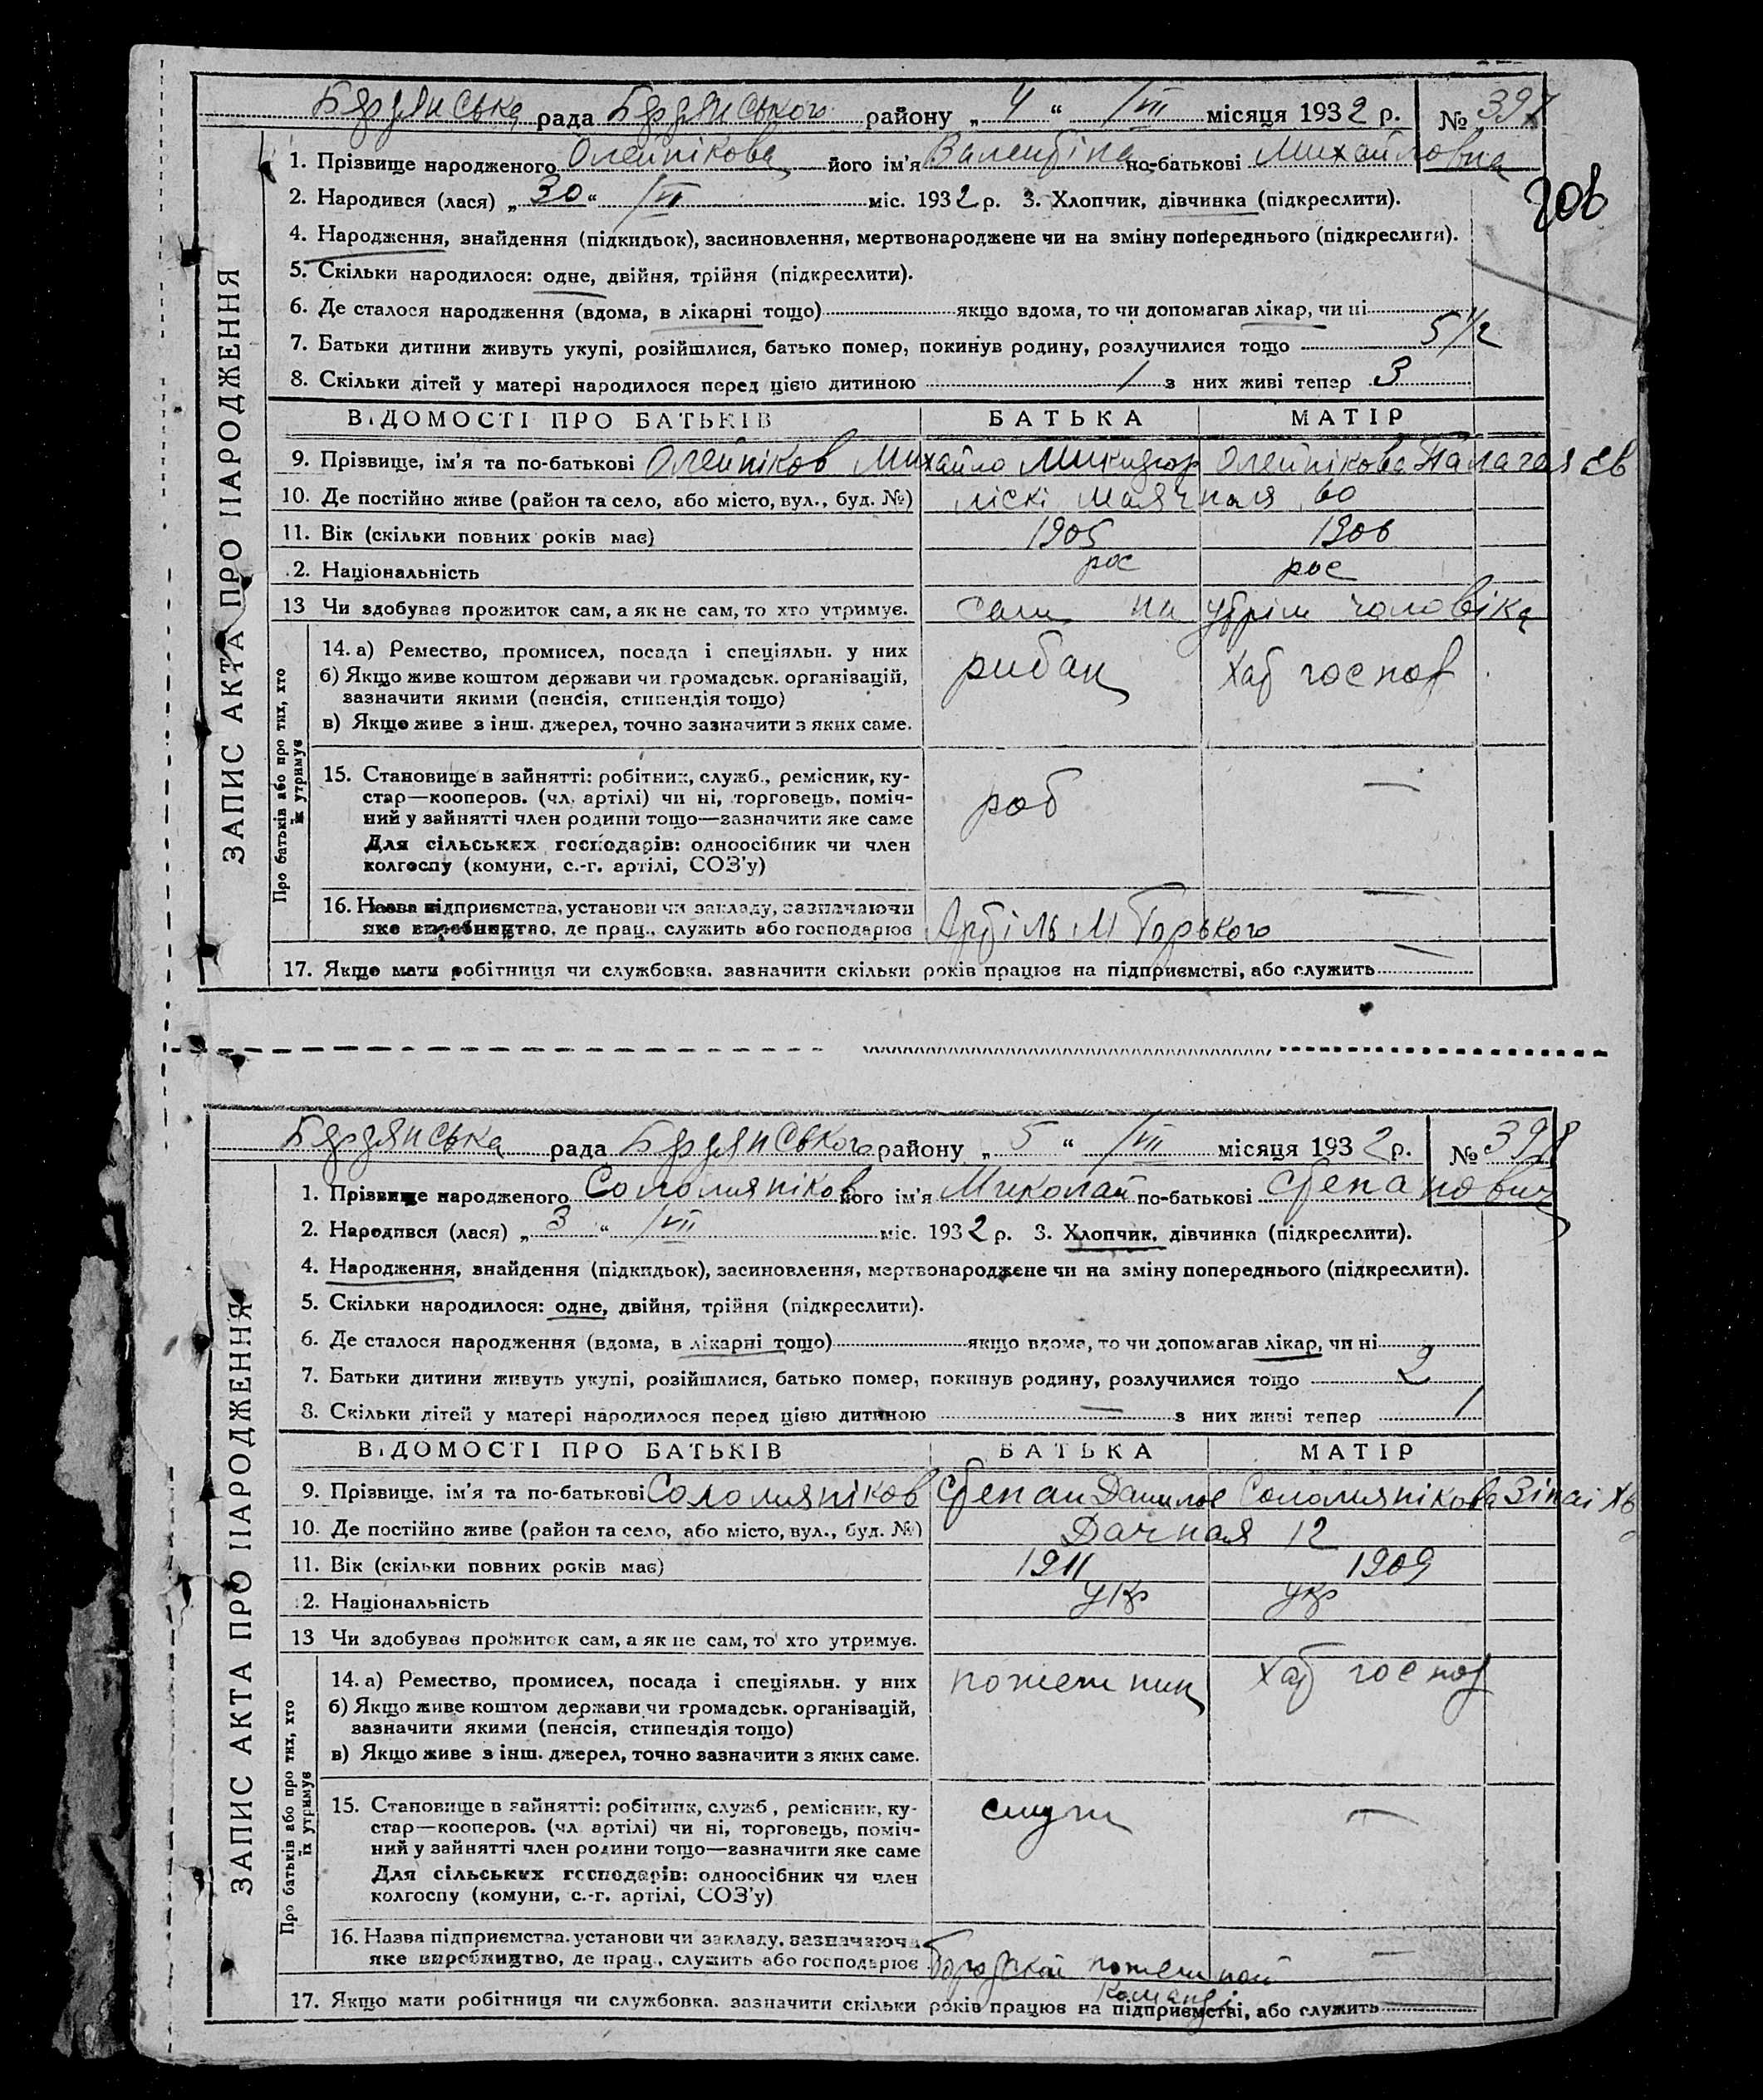 Бердянська рада Бердянського району „ 4 “ /VII місяця 1932 р. № 397
1. Прізвище народженого Олейнікова його ім'я Валентіна по-батькові Михайловна
206
2. Народився (лася) „ 30 “ /VI міс. 1932 р. 3. Хлопчик, дівчинка (підкреслити).
4. Народження, знайдення (підкидьок), засиновлення, мертвонароджене чи на зміну попереднього (підкреслити).
5. Скільки народилося: одне, двійня, трійня (підкреслити).
6. Де сталося народження (вдома, в лікарні тощо) якщо вдома, то чи допомагав лікар, чи ні
7. Батьки дитини живуть укупі, розійшлися, батько помер, покинув родину, розлучилися тощо 5 1/2
8. Скільки дітей у матері народилося перед цією дитиною / з них живі тепер 3
ВІДОМОСТІ ПРО БАТЬКІВ БАТЬКА МАТІР
9. Прізвище, ім'я та по-батькові Олейніков Михайло Микидгор Олейнікова Палагея Єв
10. Де постійно живе (район та село, або місто, вул., буд. №) ліскі Маячная 60
11. Вік (скільки повних років має) 1905 1906
2. Національність рос рос
13 Чи здобував прожиток сам, а як не сам, то хто утримує. сам на утрім чоловіка
ЗАПИС АКТА ПРО НАРОДЖЕННЯ
Про батьків або про тих, хто їх утримує
14. а) Ремество, промисел, посада і спеціяльн. у них рибак хат господ
б) Якщо живе коштом держави чи громадськ. організацій,
зазначити якими (пенсія, стипендія тощо)
в) Якщо живе з інш. джерел, точно зазначити з яких саме.
15. Становище в зайнятті: робітник, служб., ремісник, ку-
стар—кооперов. (чл. артілі) чи ні, торговець, поміч-
ний у зайнятті член родини тощо—зазначити яке саме роб —
Для сільських господарів: одноосібник чи член
колгоспу (комуни, с.-г. артілі, СОЗ'у)
16. Назва підприємства, установи чи закладу, зазначаючи —
яке виробництво, де прац., служить або господарює Артіль М Горького
17. Якщо мати робітниця чи службовка, зазначити скільки років працює на підприємстві, або служить —
Бердянська рада Бердянського району „ 5 “ /VII місяця 1932 р. № 398
1. Прізвище народженого Соломяніков його ім'я Миколай по-батькові Степанович
2. Народився (лася) „ 3 “ /VII міс. 1932 р. 3. Хлопчик, дівчинка (підкреслити).
4. Народження, знайдення (підкидьок), засиновлення, мертвонароджене чи на зміну попереднього (підкреслити).
5. Скільки народилося: одне, двійня, трійня (підкреслити).
6. Де сталося народження (вдома, в лікарні тощо) якщо вдома, то чи допомагав лікар, чи ні
7. Батьки дитини живуть укупі, розійшлися, батько помер, покинув родину, розлучилися тощо 2
8. Скільки дітей у матері народилося перед цією дитиною — з них живі тепер 1
ВІДОМОСТІ ПРО БАТЬКІВ БАТЬКА МАТІР
9. Прізвище, ім'я та по-батькові Соломяніков Степан Данилов Соломянікова Зінаі
10. Де постійно живе (район та село, або місто, вул., буд. №) Дачная 12
11. Вік (скільки повних років має) 1911 1909
2. Національність укр укр
13 Чи здобував прожиток сам, а як не сам, то хто утримує.
ЗАПИС АКТА ПРО НАРОДЖЕННЯ
Про батьків або про тих, хто їх утримує
14. а) Ремество, промисел, посада і спеціяльн. у них пожежник хат господ
б) Якщо живе коштом держави чи громадськ. організацій,
зазначити якими (пенсія, стипендія тощо)
в) Якщо живе з інш. джерел, точно зазначити з яких саме.
15. Становище в зайнятті: робітник, служб., ремісник, ку- служ —
стар—кооперов. (чл. артілі) чи ні, торговець, поміч-
ний у зайнятті член родини тощо—зазначити яке саме
Для сільських господарів: одноосібник чи член
колгоспу (комуни, с.-г. артілі, СОЗ'у)
16. Назва підприємства, установи чи закладу, зазначаючи
яке виробництво, де прац., служить або господарює Городской пожежной —
команді
17. Якщо мати робітниця чи службовка, зазначити скільки років працює на підприємстві, або служить —